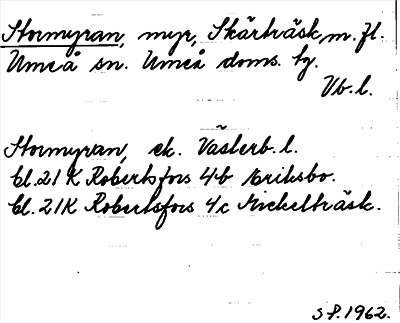 Stormyran, myr, Skärträsk, m. fl.
Umeå sn. Umeå doms. tg.
Vb. l.
Stormyran, ek. Västerb. l.
Bl. 21 K Robertsfors 4b Eriksbo.
Bl. 21K Robertsfors 4c Mickelträsk.
SP. 1962.